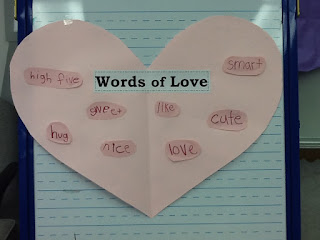 smart
high five
Words of Love
sweet
like
cute
hug
nice
love